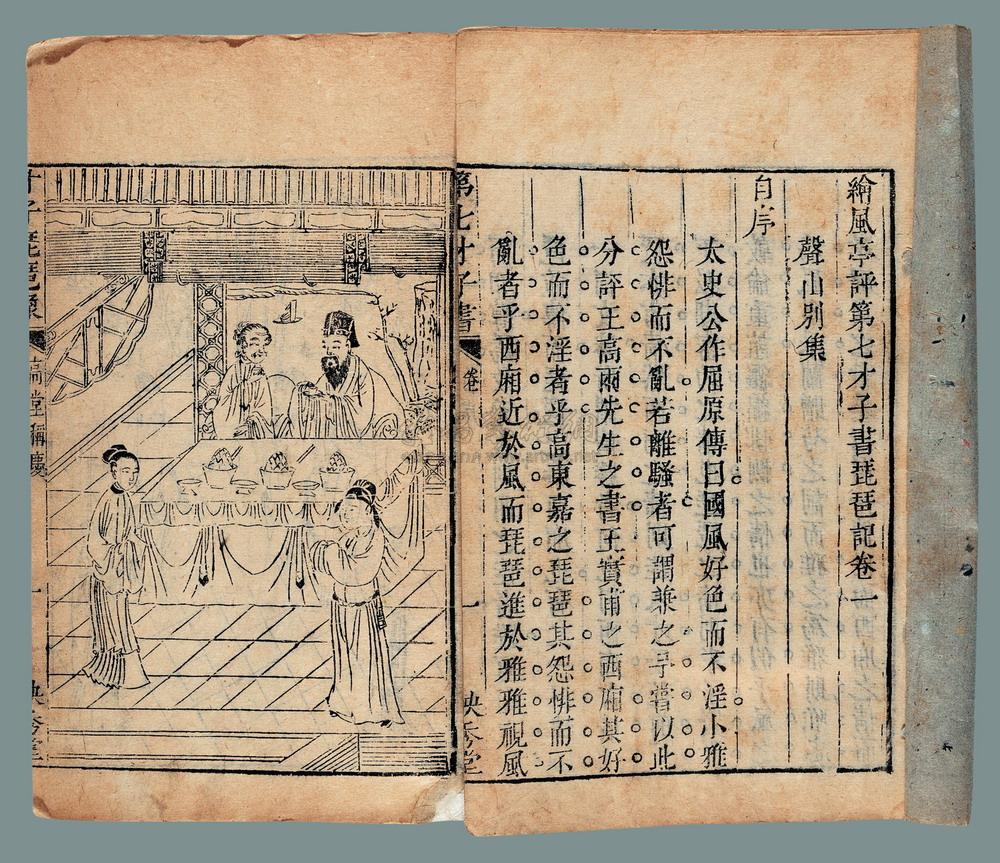 繪風亭評第七才子書琵琶記卷一
聲山別集
自序
太史公作屈原傳曰國風好色而不淫小雅
怨悱而不亂若離騷者可謂兼之予嘗以此
分評王高兩先生之書王實甫之西廂其好
色而不淫者乎高東嘉之琵琶其怨悱而不
亂者乎西廂近於風而琵琶進於雅雅視風
第七才子書
卷一
一
映秀堂
才子琵琶像
稱慶
一
映秀堂